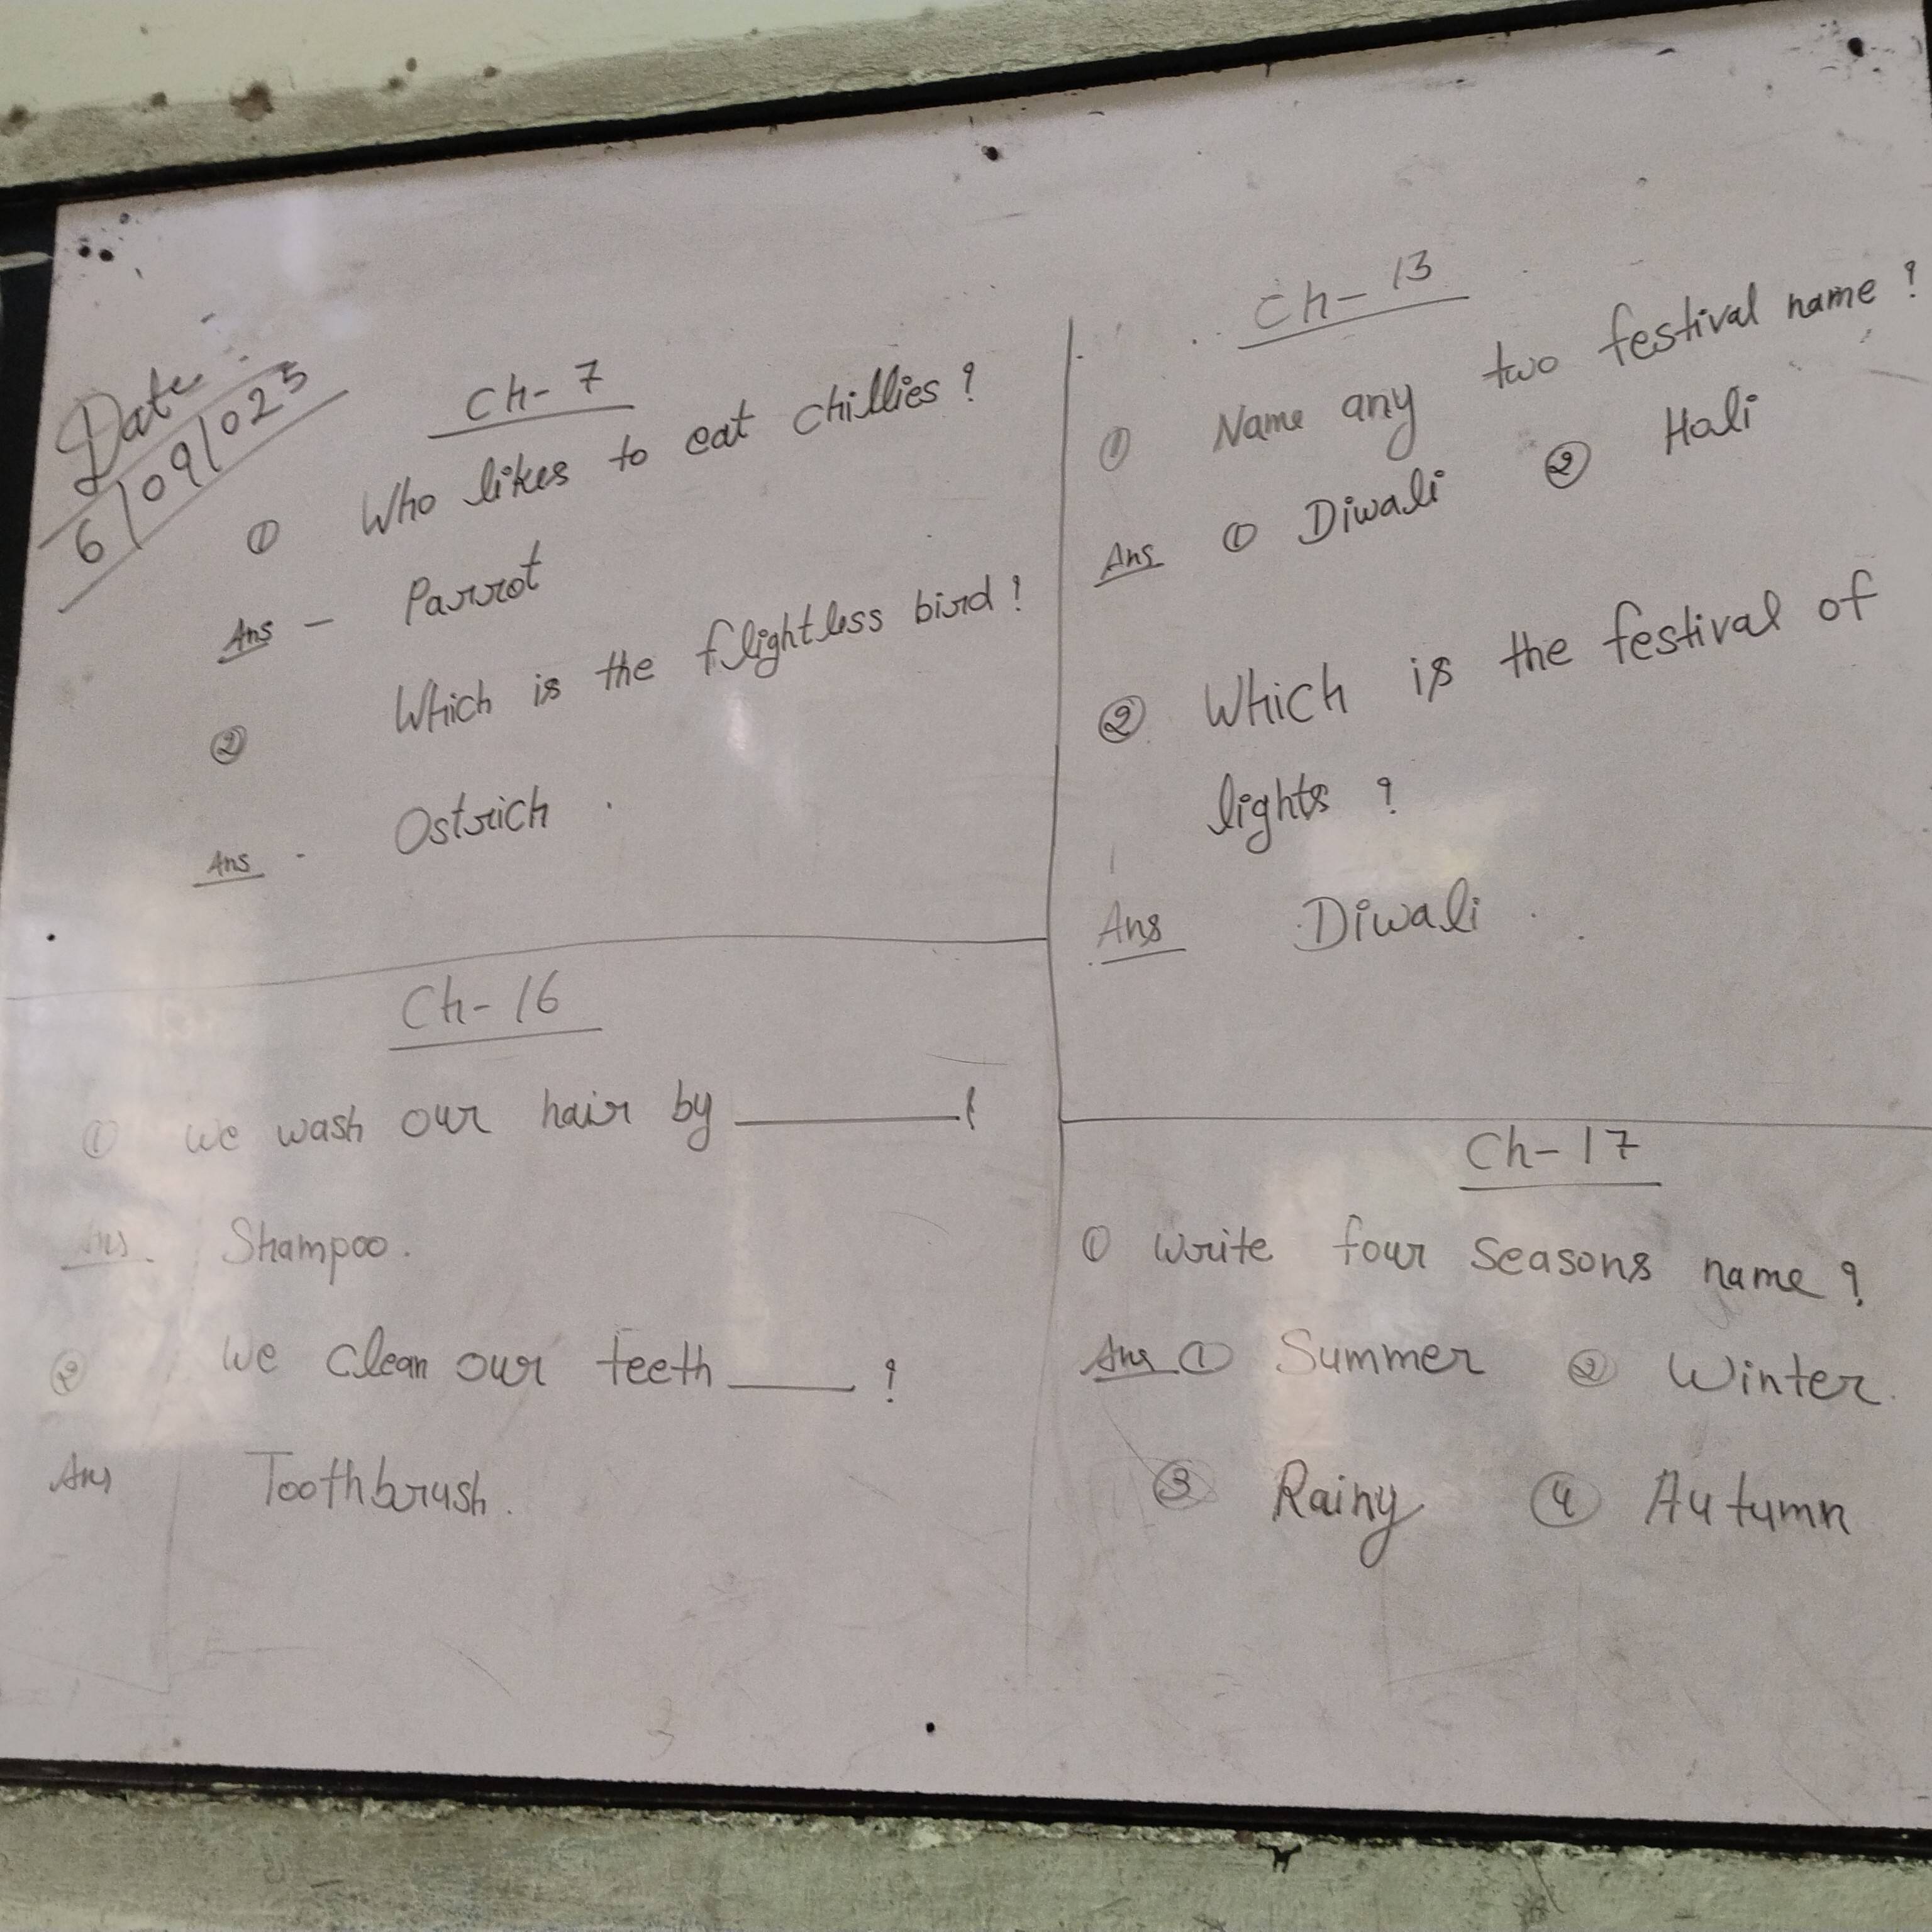 Date
6/09/025
Ch-7
① Who likes to eat chillies?
Ans - Parrot
② Which is the flightless bird?
Ans - Ostrich.
Ch-13
① Name any two festival name?
Ans ① Diwali ② Holi
② Which is the festival of
lights?
Ans Diwali.
Ch-16
① We wash our hair by ________?
Ans. Shampoo.
② We clean our teeth ____?
Ans Toothbrush.
Ch-17
① Write four seasons name?
Ans ① Summer ② Winter.
③ Rainy ④ Autumn